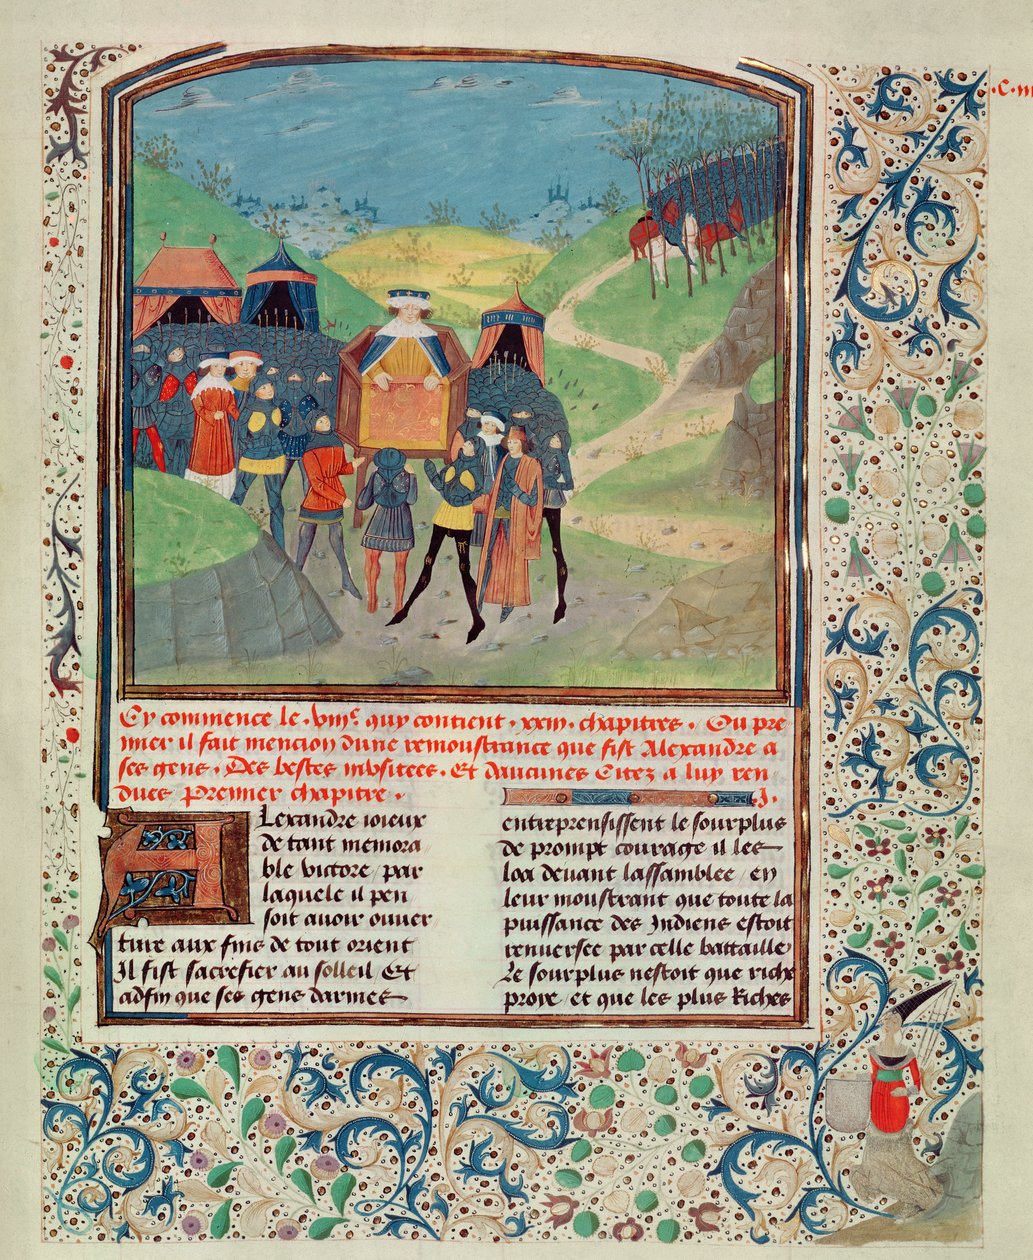 .C. m
Cy commence le .viiie. quy contient .xxiii. chapitres. Ou pre
mier il fait mencion dune remoustrance que fist Alexandre a
ses gens. Des bestes inusitees. Et daucunes Citez a luy ren
dues Premier chapitre.
.J.
ALexandre ioieux
de tant memora
ble victore / par
laquele il pen
soit auoir ouuer
ture aux fins de tout orient
Il fist sacrefier au solleil Et
adfin que ses gens darmes
entreprensissent le sourplus
de prompt courage il les
loa deuant lassamblee / en
leur moustrant que toute la
puissance des Indiens estoit
renuersee par celle battaille
Le sourplus nestoit que riche
proye / et que les plus Riches